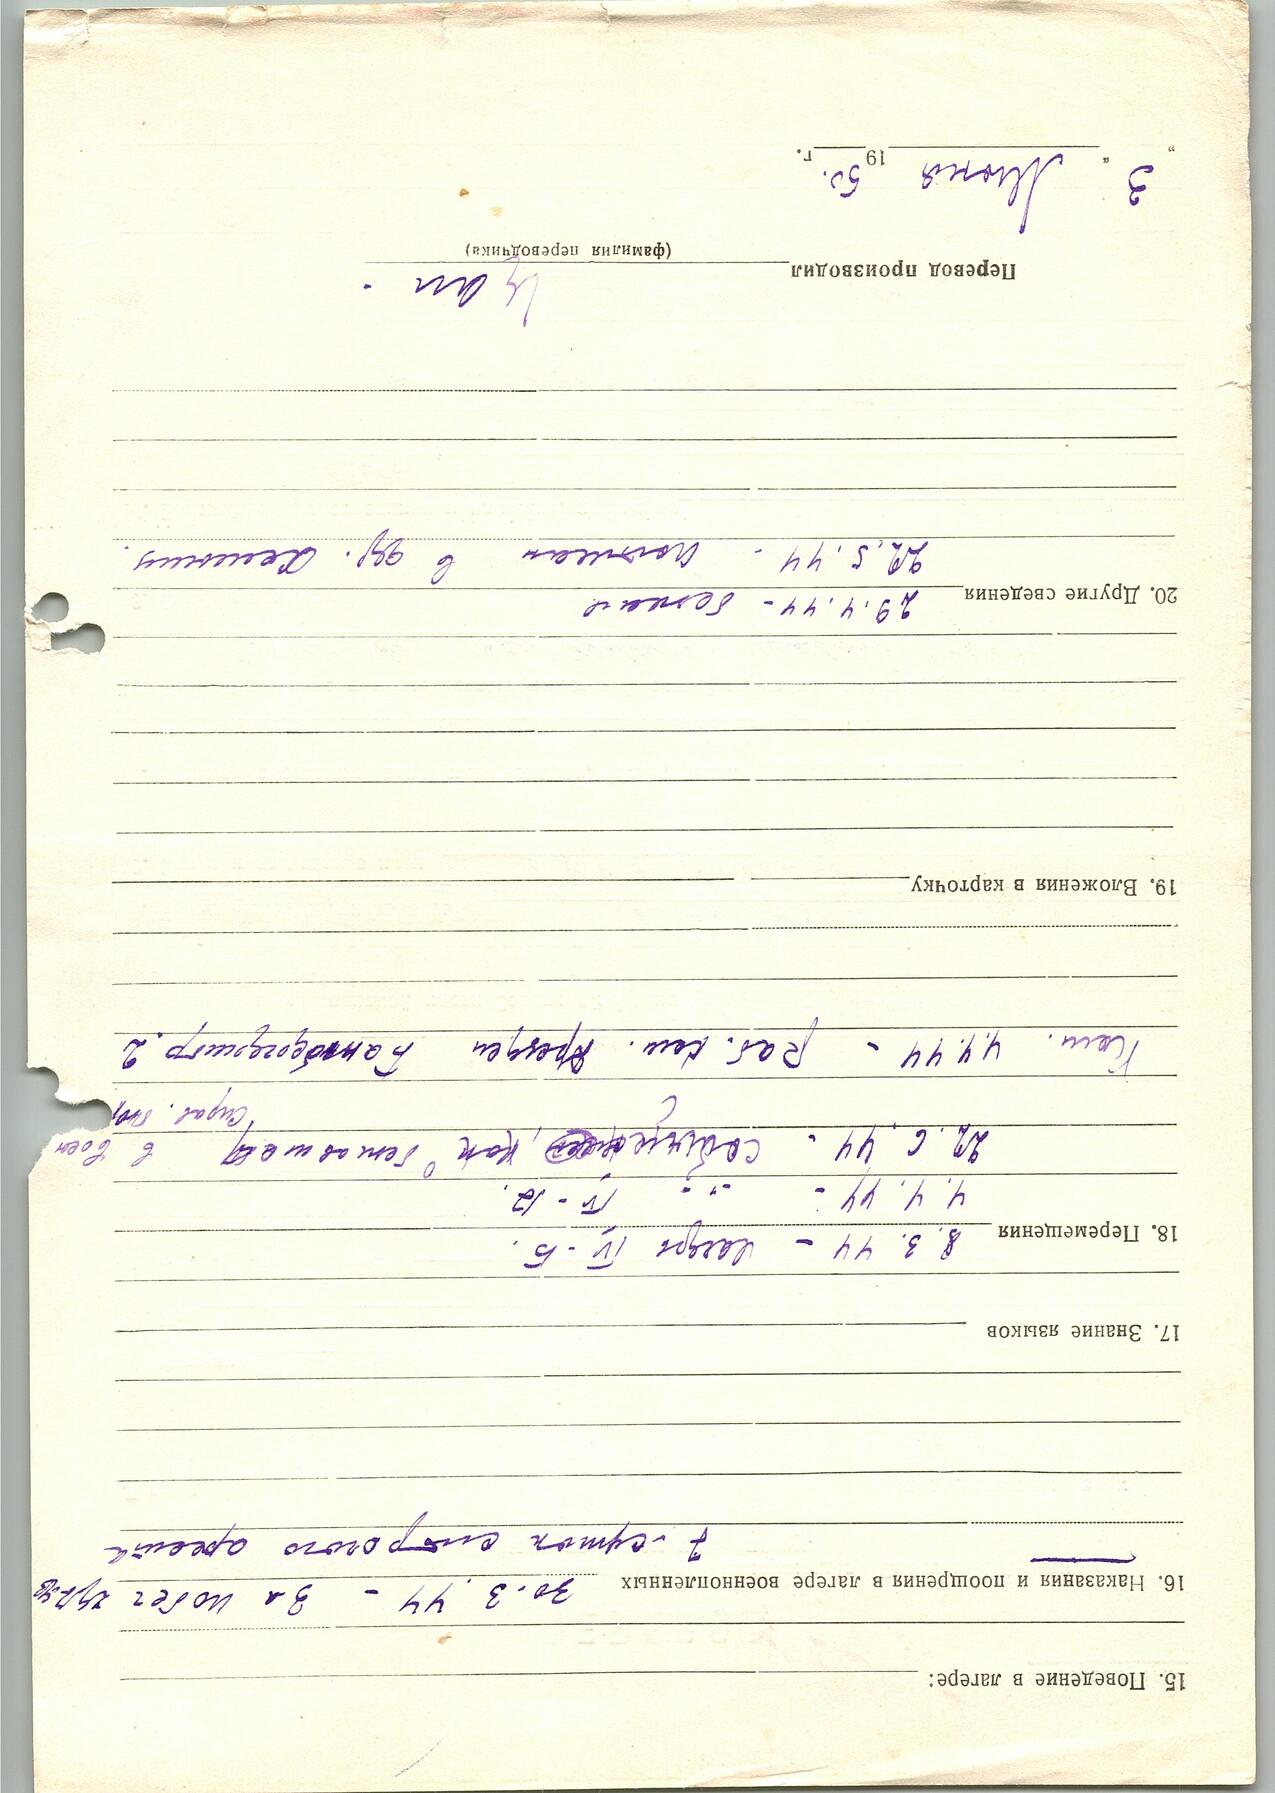 15. Поведение в лагере:
16. Наказания и поощрения в лагере военнопленных 30.3.44 – За побег
7 суток строгого ареста
17. Знание языков
18. Перемещения 8.3.44 – лагерь IV-Б.
4.4.44 – -"- IV-
22.6.44 – как бежавший в
4.4.44 – Раб. ком. Дрезден
19. Вложения в карточку
20. Другие сведения 29.4.44 – бежал
22.5.44 – пойман в
Перевод производил
(фамилия переводчика)
„3“ Июня 1950. г.